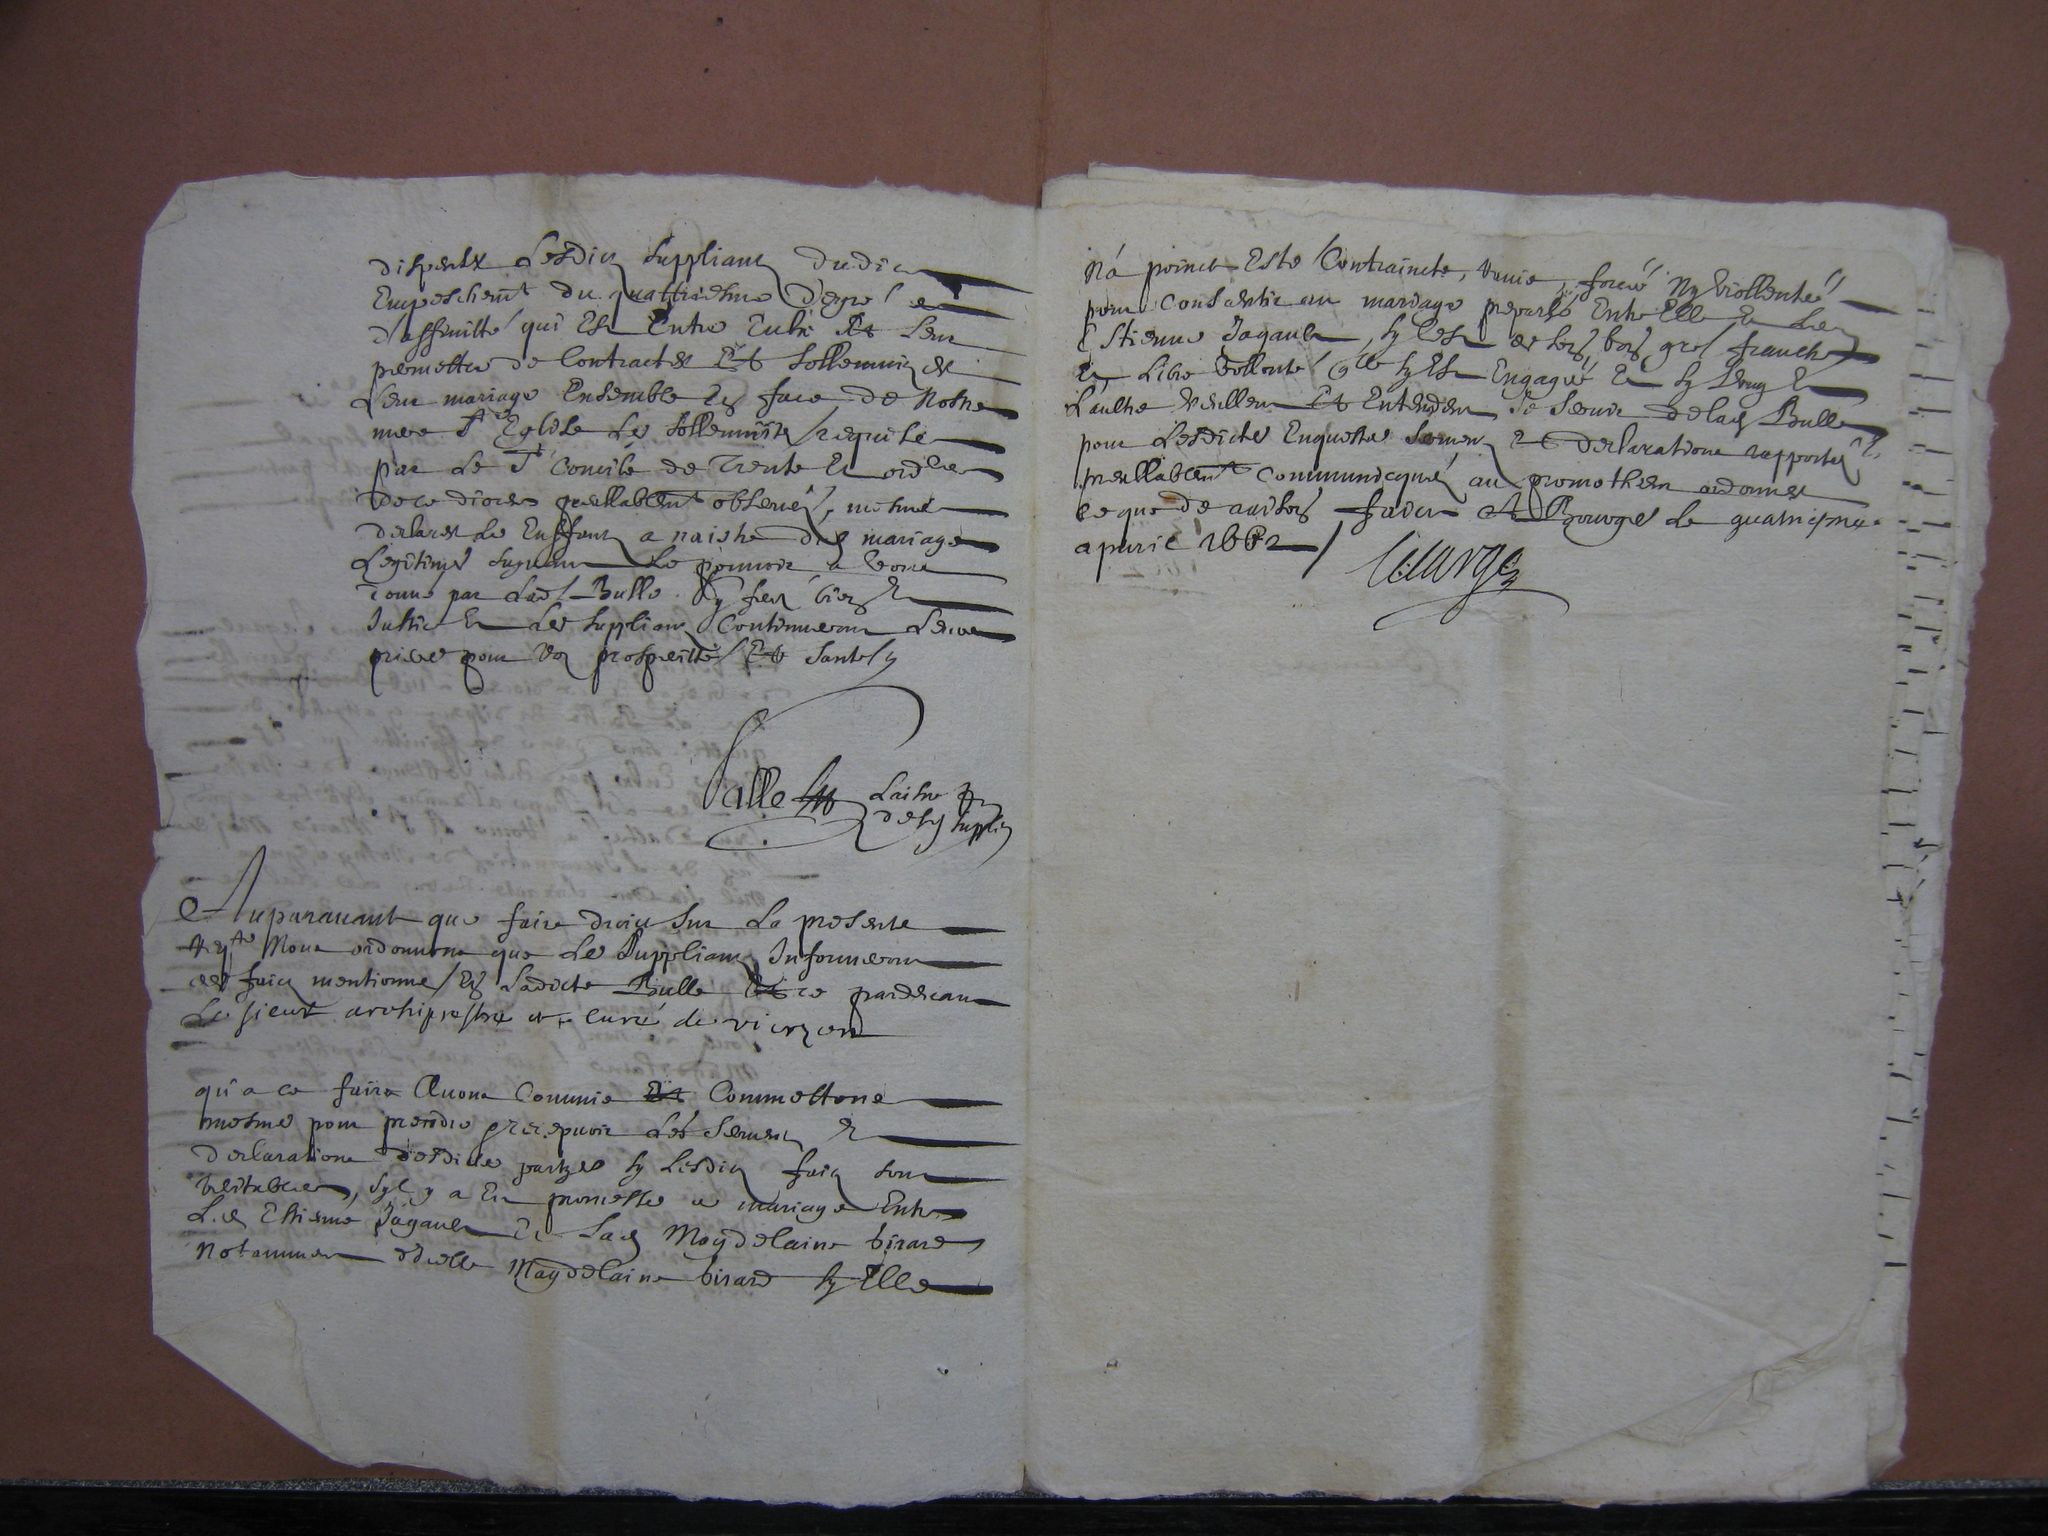 dispenser Lesdictz suppliantz dudict
Empeschemt du quattriesme degré
d'affinitté qui Est Entre Eulx Et Leur
permettre de Contracter Et sollemnizer
Leur mariage Ensemble En face de Nostre
mere Ste Eglise Les sollemnitez requises
par Le St Concile de Trente Et ordres
de ce dioceze preallablemt observez, mesme
declarer Les Enffans a naistre dud mariage
Legitimes suyvant Le pouvoir a vous
donné par Lad Bulle. Sy ferez bien Et
Justice Et Les suppliantz Continueront Leurs
prieres pour vos prosperittez Et Santez
desd supplians
Auparavant que faire droict sur La presente
reqte Nous ordonnons que Les Suppliantz Informeront
des faictz mentionnez En Ladicte Bulle Et ce pardevant
Le sieur archiprestre et curé de vierzon
qu'a ce faire Avons Commis Et Commettons
mesme pour prendre et recepvoir Les Sermentz Et
declarations desdictes partyes sy Lesdictz faictz sont
veritables, Syl y a Eu promesse de mariage Entre
Led Estienne Jagault Et Lad Magdelaine birard
Notamment d'icelle Magdelaine birard sy Elle
N'a poinct Esté Contraincte, ravie, forcée Ny viollentée
pour Consentir au mariage preparlé Entre Elle Et Led
Estienne Jagault, sy c'est de son bon gré franche
Et Libre vollonté qu'elle s'y Est Engagée Et sy L'ung Et
L'aultre veullent Et Entendent Se Servir de lad Bulle
pour Lesdictes Enquestes Sermentz Et declarations rapportez
preallablemt Communicquez au promotheur ordonner
ce que de raison faict A Bourges Le quatriesme
apvril 1662